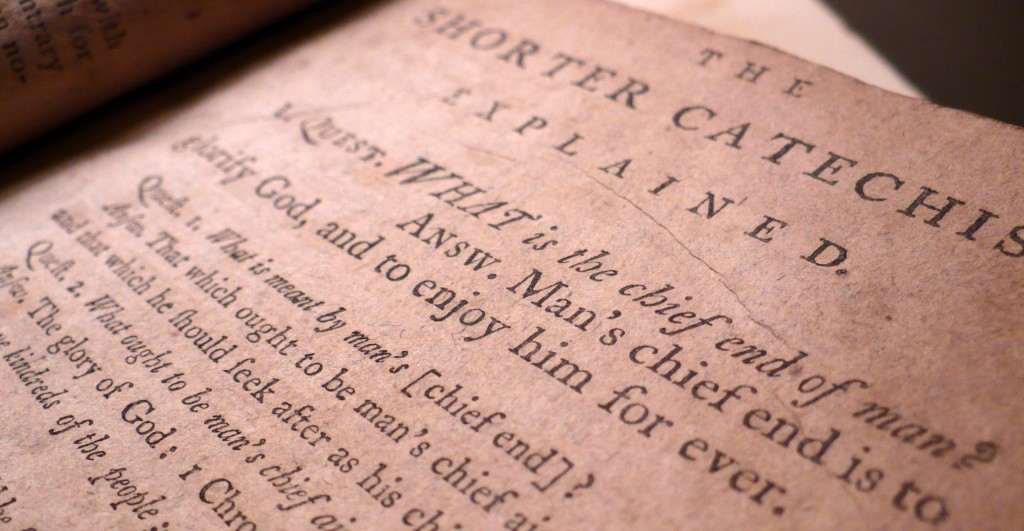 with
h for
ntrary
no-
THE
SHORTER CATECHIS
EXPLAINED.
1. QUEST. WHAT is the chief end of man?
ANSW. Man's chief end is to
glorify God, and to enjoy him for ever.
Queſt. 1. What is meant by man's [chief end]?
Anſw. That which ought to be man's chief ai
and that which he ſhould ſeek after as his chi
Queſt. 2. What ought to be man's chief ai
Anſw. The glory of God: 1 Chro
kindreds of the people: